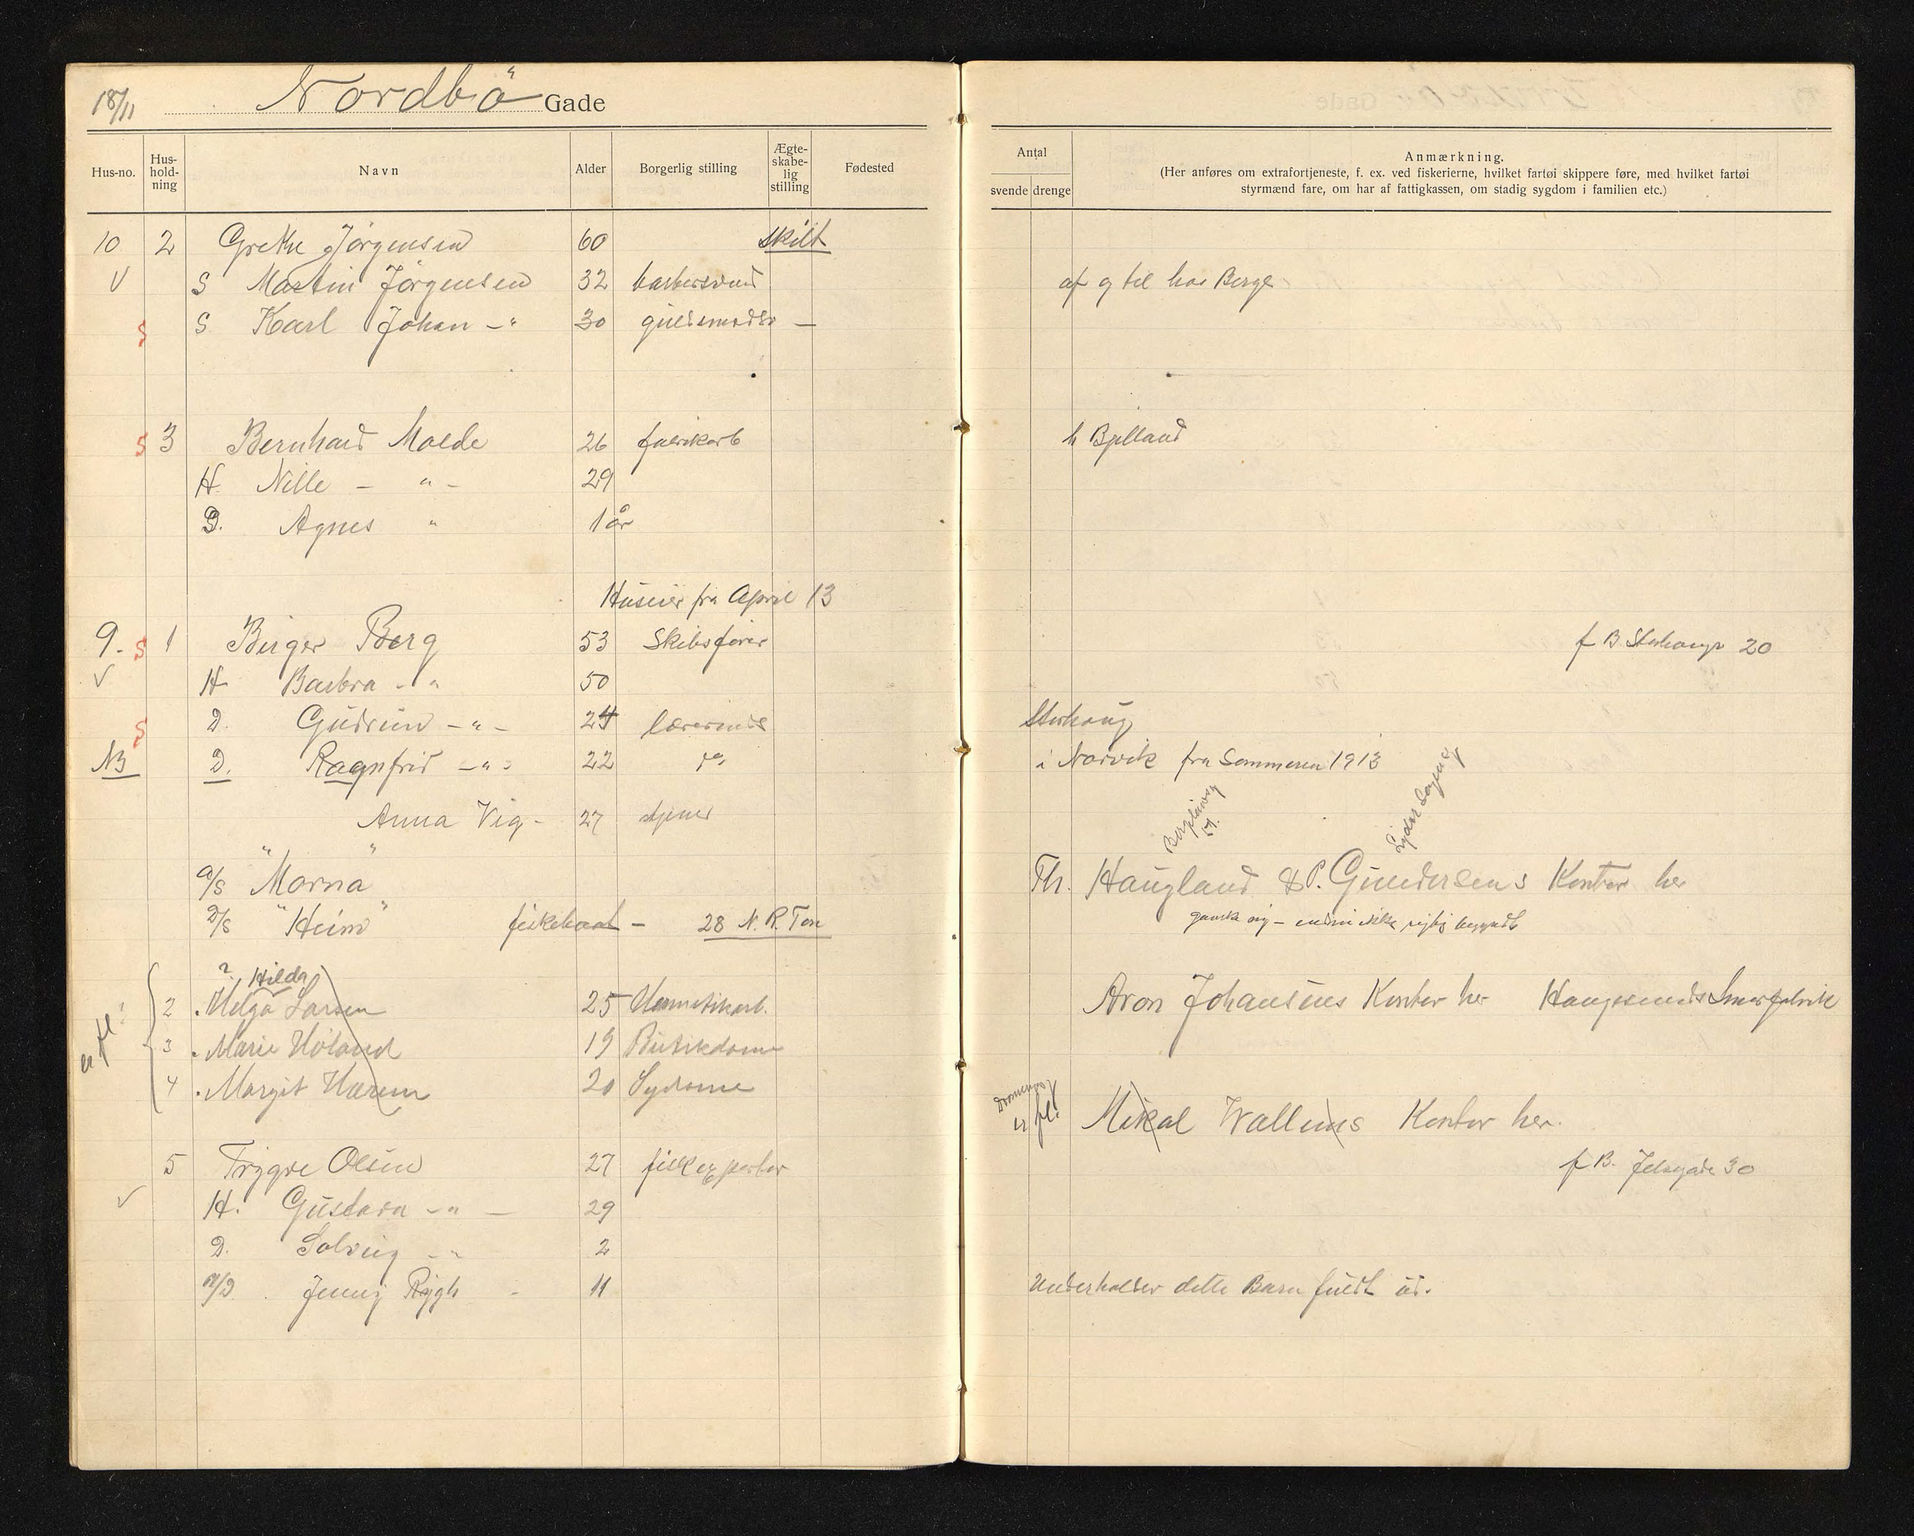 18/11 Nordbö Gade
Hus-no. Hus-hold-ning Navn Alder Borgerlig stilling Ægte-skabe-lig stilling Fødested
10 2 Grethe Jörgensen 60 skilt
S Martin Jörgensen 32 barbersvend
S S Karl Johan –"– 30 guldsmedsv –
S 3 Bernhard Molde 26 fabrikarb
H Nille – " – 29
D. Agnes " 1 år
Huseier fra April 13
9. S 1 Birger Berg 53 Skibsfører
H Barbra – " 50
S D. Gudrun – " – 24 lærerinde
NB D. Ragnfrid – " – 22 do
Anna Vig – 27 tjener
a/s "Morna"
D/s "Heim" fiskebaat – 28 N. R. Ton
? Hilda
2 Helga Larsen 25 Hermetikarb.
3 Marie Höland 19 Butikdame
4 Margit Hærem 20 Sydame
er fl ?
5 Trygve Olsen 27 fiskexportör
H. Gustava – " – 29
D. Solveig – " – 2
Pl/D Jenny Rygh 11
Gade
Antal
svende drenge
Anmærkning.
(Her anføres om extrafortjeneste, f. ex. ved fiskerierne, hvilket fartøi skippere føre, med hvilket fartøi
styrmænd fare, om har af fattigkassen, om stadig sygdom i familien etc.)
af og til hos Berge
h Bjelland
f B Storhaugv 20
Storhaug
i Narvik fra Sommeren 1913
Th. Haugland & P. Gundersens Kontor her
ganske ny – endnu ikke rigtig begyndt
Aron Johansens Kontor her Haugesunds Smørfabrik
er fl!
Mikal Wallems Kontor her.
f B. Jelsagade 30
Underholder dette Barn fuldt ud.